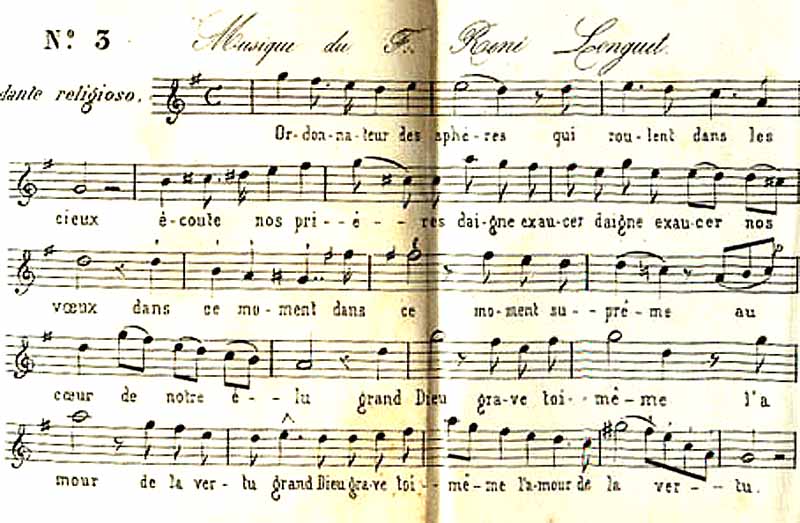 Nº 3 Musique du F. René Lenguet.
dante religioso.
Or-don-na-teur des sphè-res qui rou-lent dans les
cieux é-coute nos pri--è--res dai-gne exau-cer daigne exau-cer nos
vœux dans ce mo-ment dans ce mo-ment su--prê-me au
cœur de notre é--lu grand Dieu gra-ve toi--mê-me l'a
mour de la ver-tu grand Dieu gra-ve toi--mê-me l'a-mour de la ver--tu.